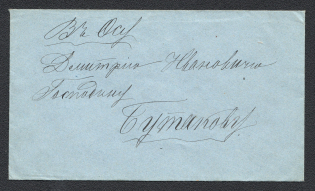 Въ Осу
Дмитрію Ивановичу
Господину
Бутакову